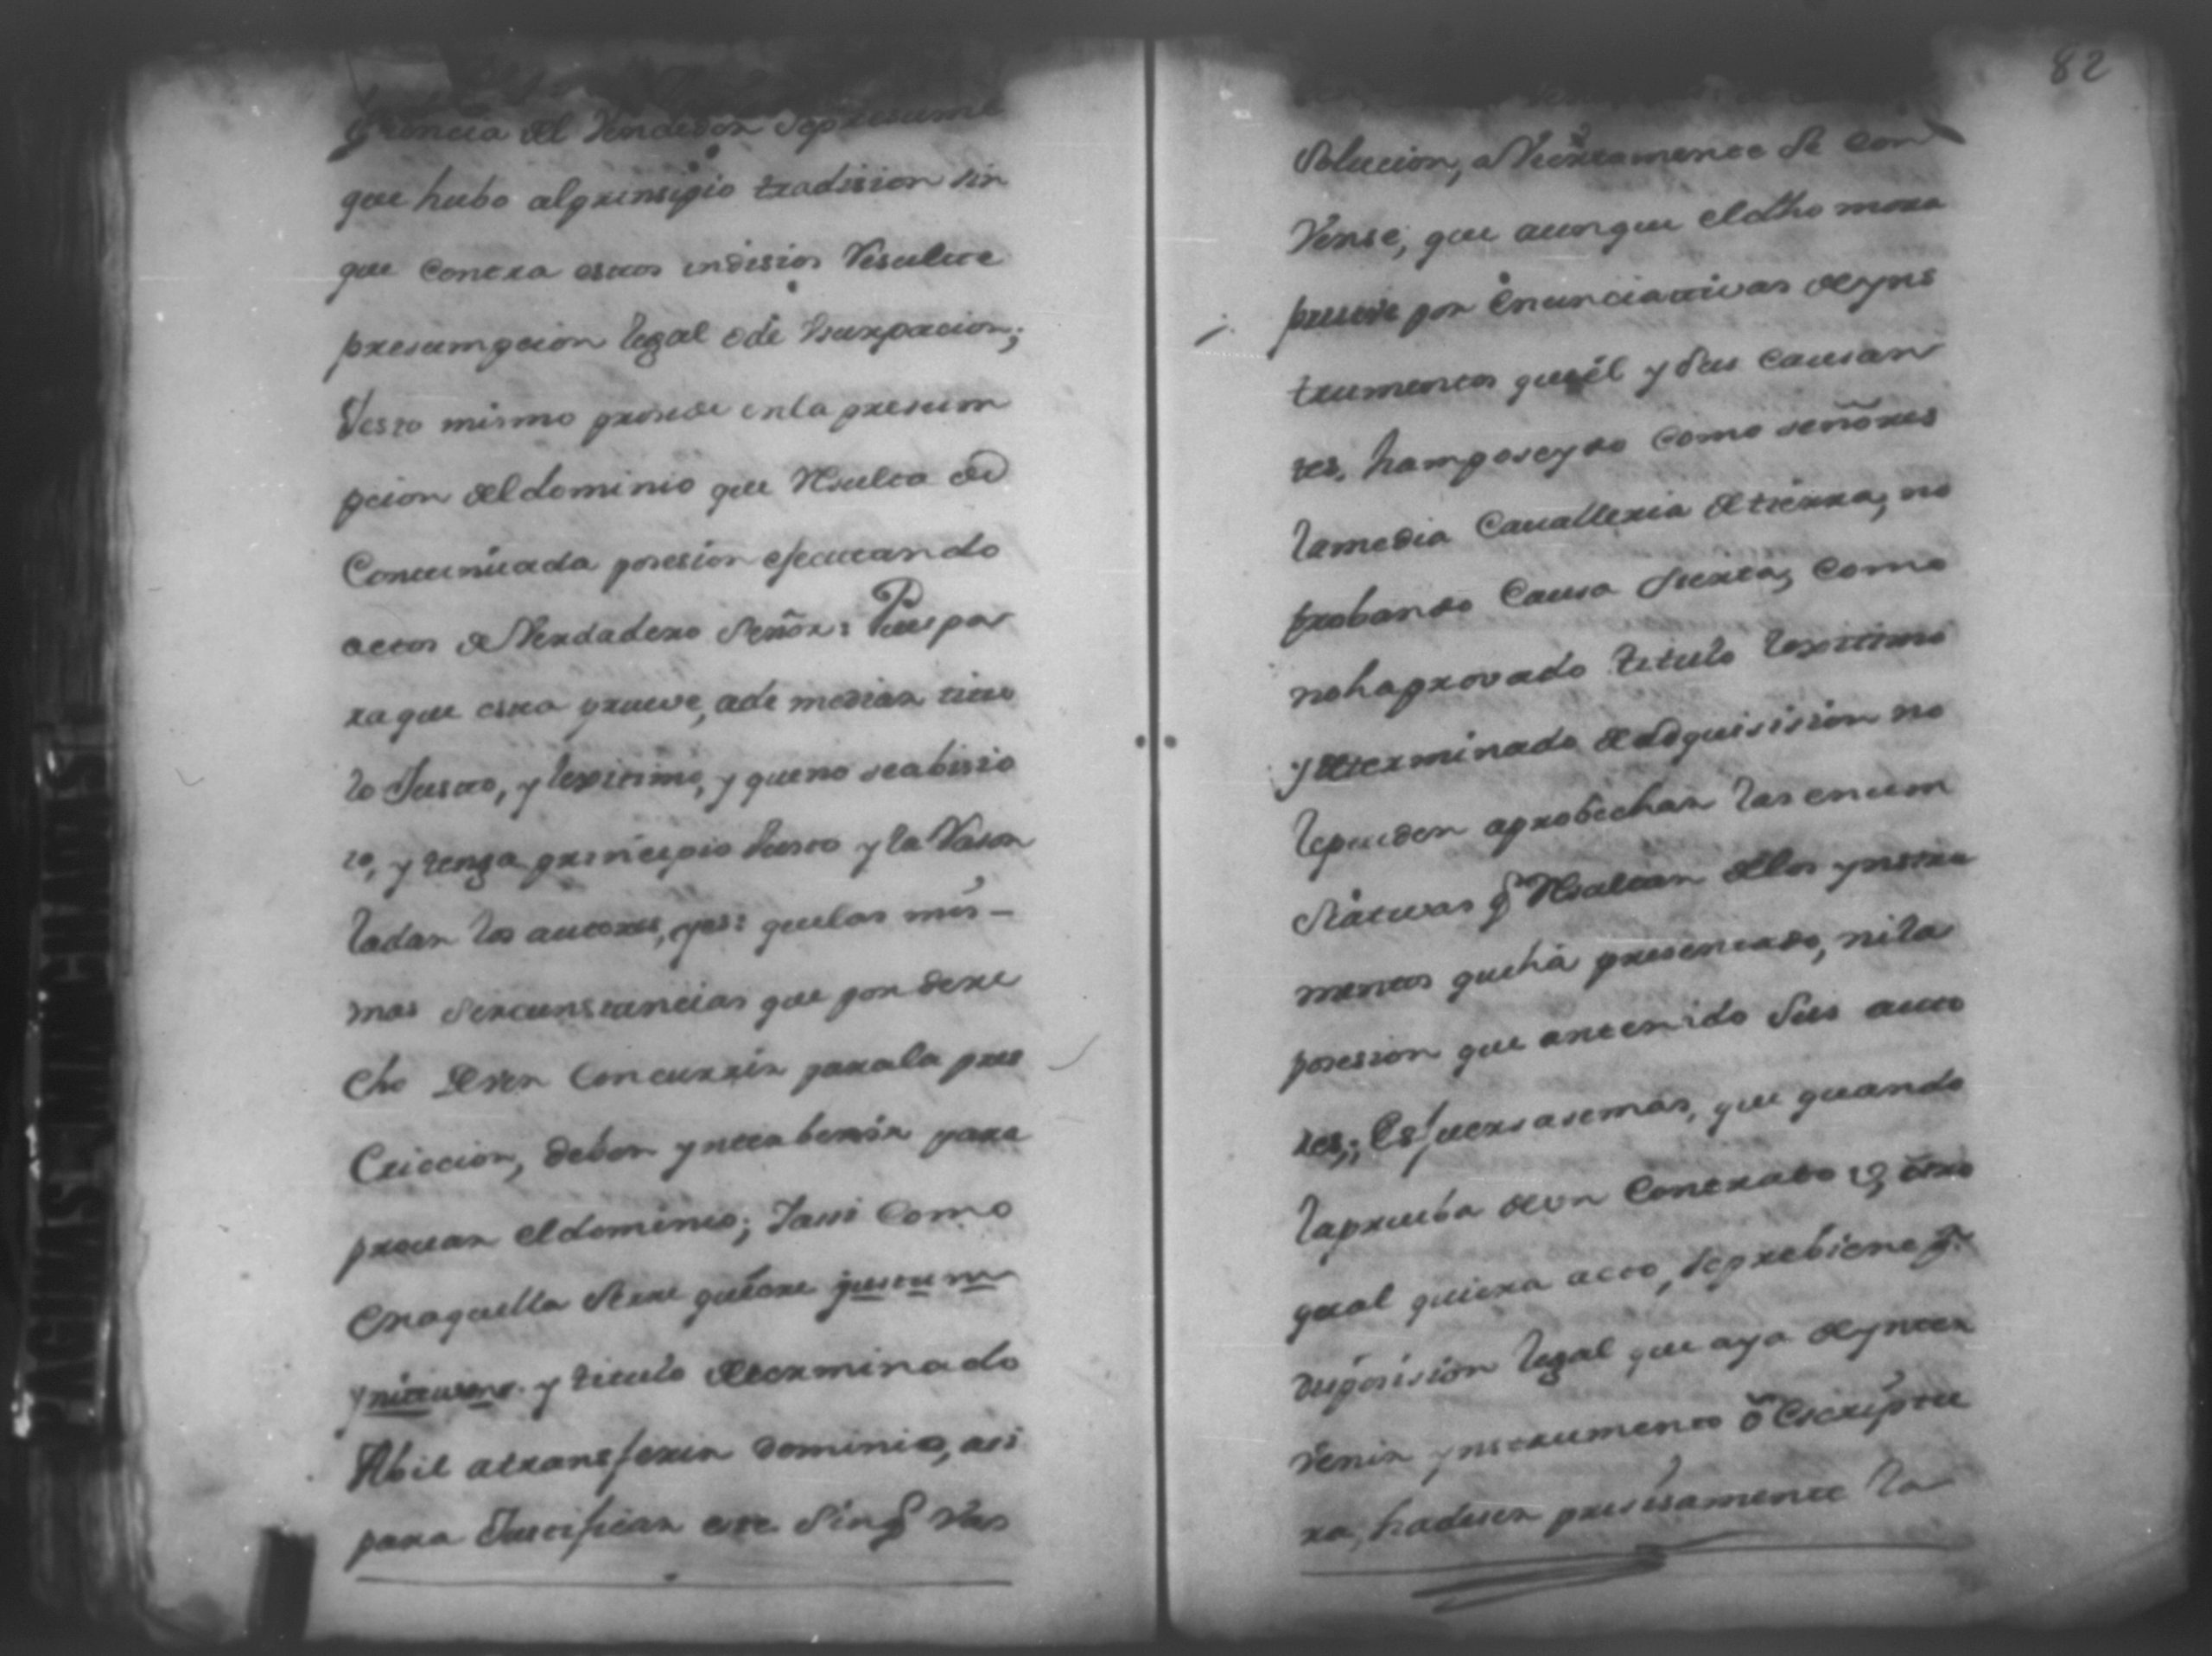 82
del Vendedor sepresume
que hubo alprinsipio tradision sin
que Contra estos indisios Resulte
presumpcion legal ôde Usurpacion;
Yesto mismo prosede enla presum
pcion deldominio que Resulta de
Contunuada posesion efecutando
actos de Verdadero Señor: Pues pa
ra que esta prueve, ade mediar titu
lo Justo, y lexitimo, y queno seabisio
so, y tenga prinsipio Justo y la Rason
ladan los autores, y es: quelas mis-
mas sircunstancias que por dere
cho deven Concurrir parala pres
Criccion, deben ynterbenir para
provar eldominio; Yassi Como
Enaquella Sere quiere justum
ynitiusmo. y titulo determinado
Abil atransferir dominio, asi
para Justificar este sinq Res
solucion, a Veriramente Se con
Vense; que aunque eldho mora
prueve por Enunciativas deyns
trumentos queel y sus Causan
tes, hamposeydo Como señores
lamedia Cavalleria detierra, no
probando Causa Sierta, Como
nohaprovado titulo lexitimo
y determinado deadquisision no
lepueden aprobechar las enun
siativas q Resultan delos ynstru
mentos quehâ presentado, nila
posesion que antenido sus auto
res; Esfuersasemas, que quando
laprueba deun Contrato û ôtro
qual quiera acto, seprebiene q.
disposision legal que aya deynter
venir ynstrumento ô Escriptu
ra, hadeser presisamente la